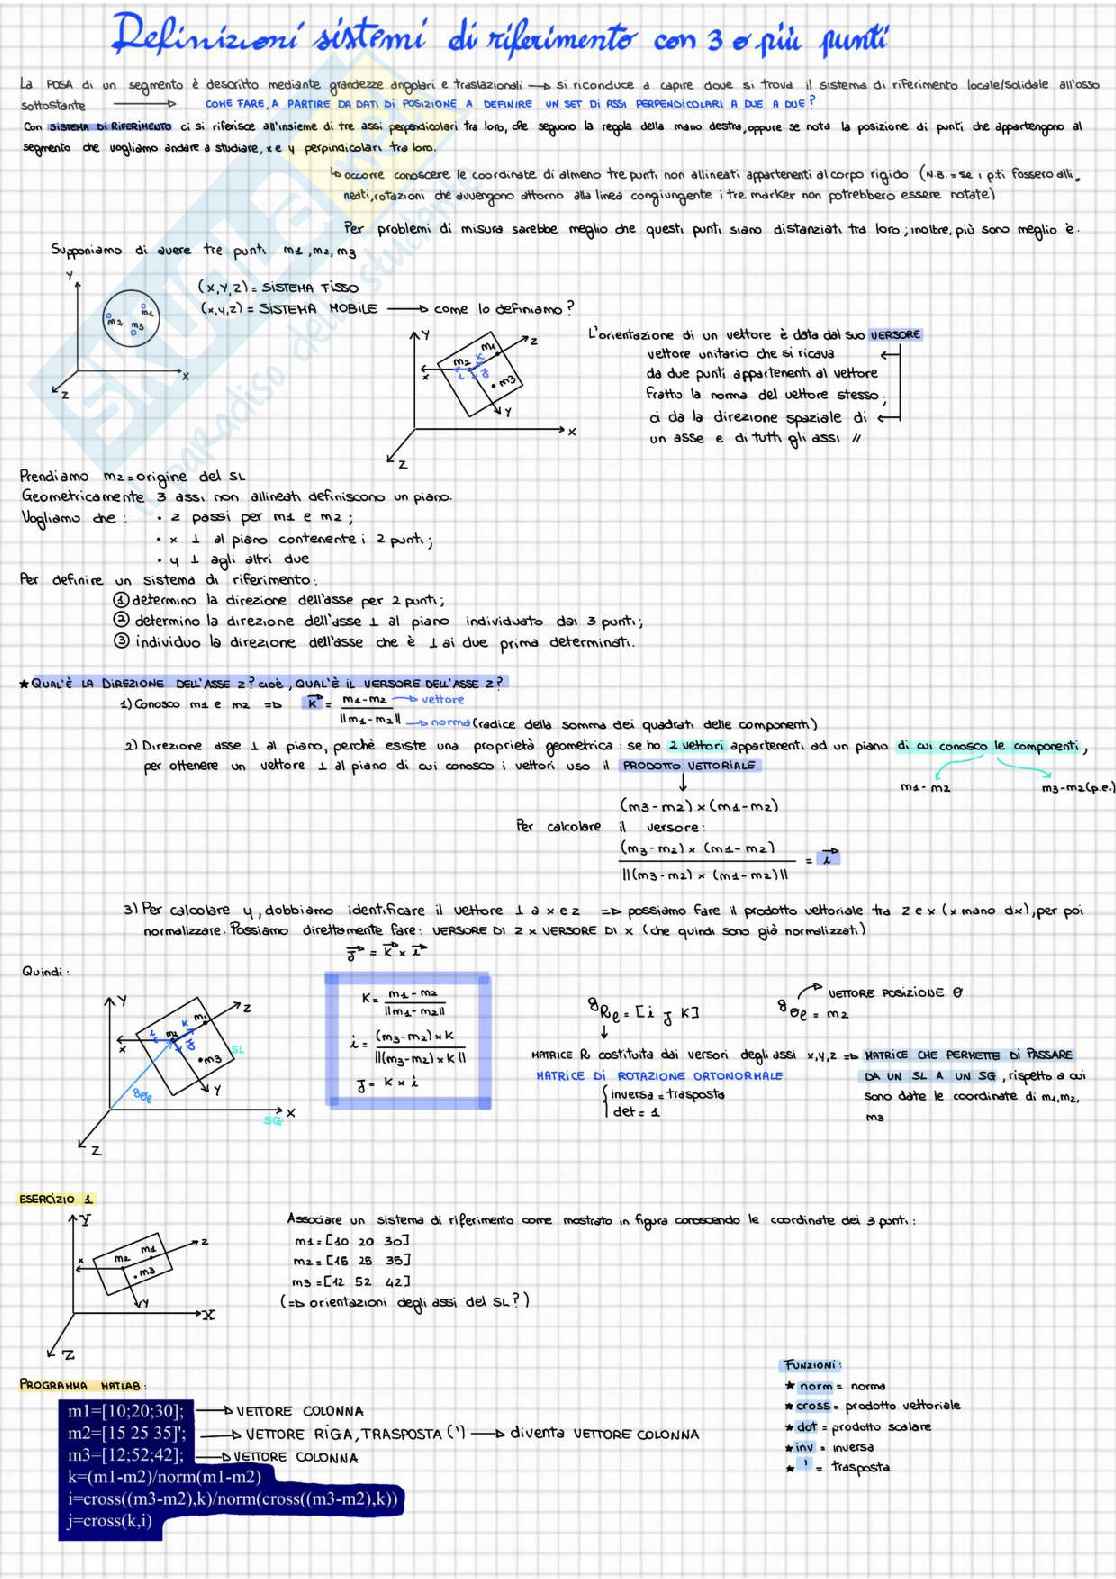 Definizioni sistemi di riferimento con 3 o più punti
La POSA di un segmento è descritto mediante grandezze angolari e traslazionali → si riconduce a capire dove si trova il sistema di riferimento locale/solidale all'osso
sottostante → COME FARE, A PARTIRE DA DATI DI POSIZIONE A DEFINIRE UN SET DI ASSI PERPENDICOLARI A DUE A DUE?
Con SISTEMA DI RIFERIMENTO ci si riferisce all'insieme di tre assi perpendicolari tra loro, che seguono la regola della mano destra, oppure se nota la posizione di punti che appartengono al
segmento che vogliamo andare a studiare, x e y perpindicolari tra loro.
↳ occorre conoscere le coordinate di almeno tre punti non allineati appartenenti al corpo rigido (N.B. = se i p.ti fossero alli_
neati, rotazioni che avvengono attorno alla linea congiungente i tre marker non potrebbero essere notate)
Per problemi di misura sarebbe meglio che questi punti siano distanziati tra loro; inoltre, più sono meglio è.
Supponiamo di avere tre punti m1, m2, m3
Y
m1
m2
m3
X
Z
(X,Y,Z) = SISTEMA FISSO
(x,y,z) = SISTEMA MOBILE → come lo definiamo?
Y
m1
z
m2
k
x
i
j
m3
y
X
Z
L'orientazione di un vettore è data dal suo VERSORE
vettore unitario che si ricava ←
da due punti appartenenti al vettore
fratto la norma del vettore stesso;
ci da la direzione spaziale di ←
un asse e di tutti gli assi //
Prendiamo m2 = origine del SL
Geometricamente 3 assi non allineati definiscono un piano.
Vogliamo che: • z passi per m1 e m2;
• x ⊥ al piano contenente i 2 punti;
• y ⊥ agli altri due
Per definire un sistema di riferimento:
① determino la direzione dell'asse per 2 punti;
② determino la direzione dell'asse ⊥ al piano individuato dai 3 punti;
③ individuo la direzione dell'asse che è ⊥ ai due prima determinati.
★ QUAL'È LA DIREZIONE DELL'ASSE Z? cioè, QUAL'È IL VERSORE DELL'ASSE Z?
1) Conosco m1 e m2 => k = m1-m2 → vettore
||m1-m2|| → norma (radice della somma dei quadrati delle componenti)
2) Direzione asse ⊥ al piano, perchè esiste una proprietà geometrica: se ho 2 vettori appartenenti ad un piano di cui conosco le componenti,
per ottenere un vettore ⊥ al piano di cui conosco i vettori uso il PRODOTTO VETTORIALE
m1-m2 m3-m2 (p.e.)
(m3-m2) x (m1-m2)
Per calcolare il versore:
(m3-m2) x (m1-m2)
||(m3-m2) x (m1-m2)|| = i
3) Per calcolare y, dobbiamo identificare il vettore ⊥ a x e z => possiamo fare il prodotto vettoriale tra z e x (x mano dx), per poi
normalizzare. Possiamo direttamente fare: VERSORE DI Z x VERSORE DI X (che quindi sono già normalizzati)
j = k x i
Quindi:
Y
z
m1
k
m2
i
x
j
m3
SL
y
gOl
X
SG
Z
k = m1-m2
||m1-m2||
i = (m3-m2) x k
||(m3-m2) x k||
j = k x i
gRl = [i j k]
→ VETTORE POSIZIONE O
gOl = m2
MATRICE R costituita dai versori degli assi x,y,z => MATRICE CHE PERMETTE DI PASSARE
DA UN SL A UN SG, rispetto a cui
sono date le coordinate di m1, m2,
m3
MATRICE DI ROTAZIONE ORTONORMALE
{ inversa = trasposta
det = 1
ESERCIZIO 1
Y
m1
z
m2
x
m3
y
X
Z
Associare un sistema di riferimento come mostrato in figura conoscendo le coordinate dei 3 punti:
m1 = [10 20 30]
m2 = [15 25 35]
m3 = [12 52 42]
(=> orientazioni degli assi del SL?)
PROGRAMMA MATLAB:
m1=[10;20;30]; → VETTORE COLONNA
m2=[15 25 35]'; → VETTORE RIGA, TRASPOSTA (') → diventa VETTORE COLONNA
m3=[12;52;42]; → VETTORE COLONNA
k=(m1-m2)/norm(m1-m2)
i=cross((m3-m2),k)/norm(cross((m3-m2),k))
j=cross(k,i)
FUNZIONI:
★ norm = norma
★ cross = prodotto vettoriale
★ dot = prodotto scalare
★ inv = inversa
★ ' = trasposta